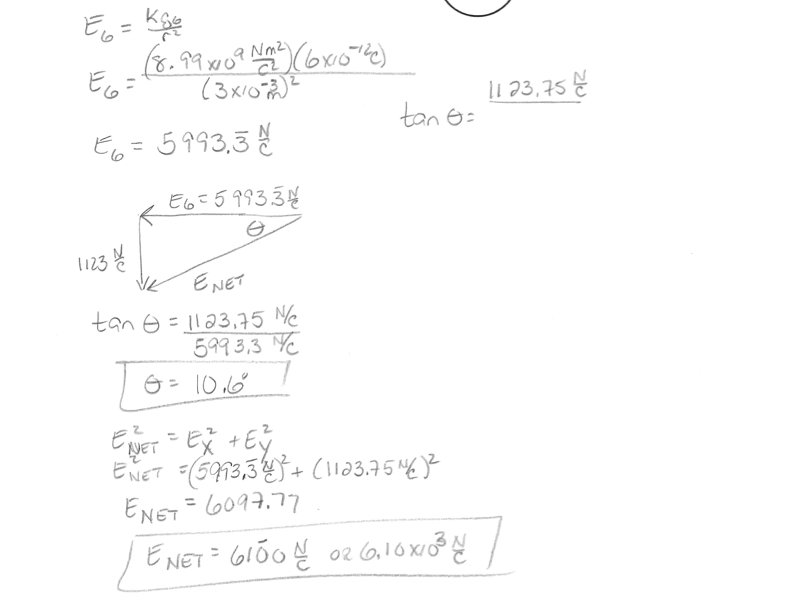 E₆ = kq₆/r²
E₆ = (8.99x10⁹ Nm²/C²)(6x10⁻¹²C)/(3x10⁻³m)²
E₆ = 5993.3̄ N/C
tan θ = 1123.75 N/C
E₆ = 5993.3̄ N/C
θ
1123 N/C
E_NET
tan θ = 1123.75 N/C / 5993.3 N/C
θ = 10.6°
E²_NET = E²_X + E²_Y
E²_NET = (5993.3̄ N/C)² + (1123.75 N/C)²
E_NET = 6097.77
E_NET = 610̄0 N/C or 6.10x10³ N/C